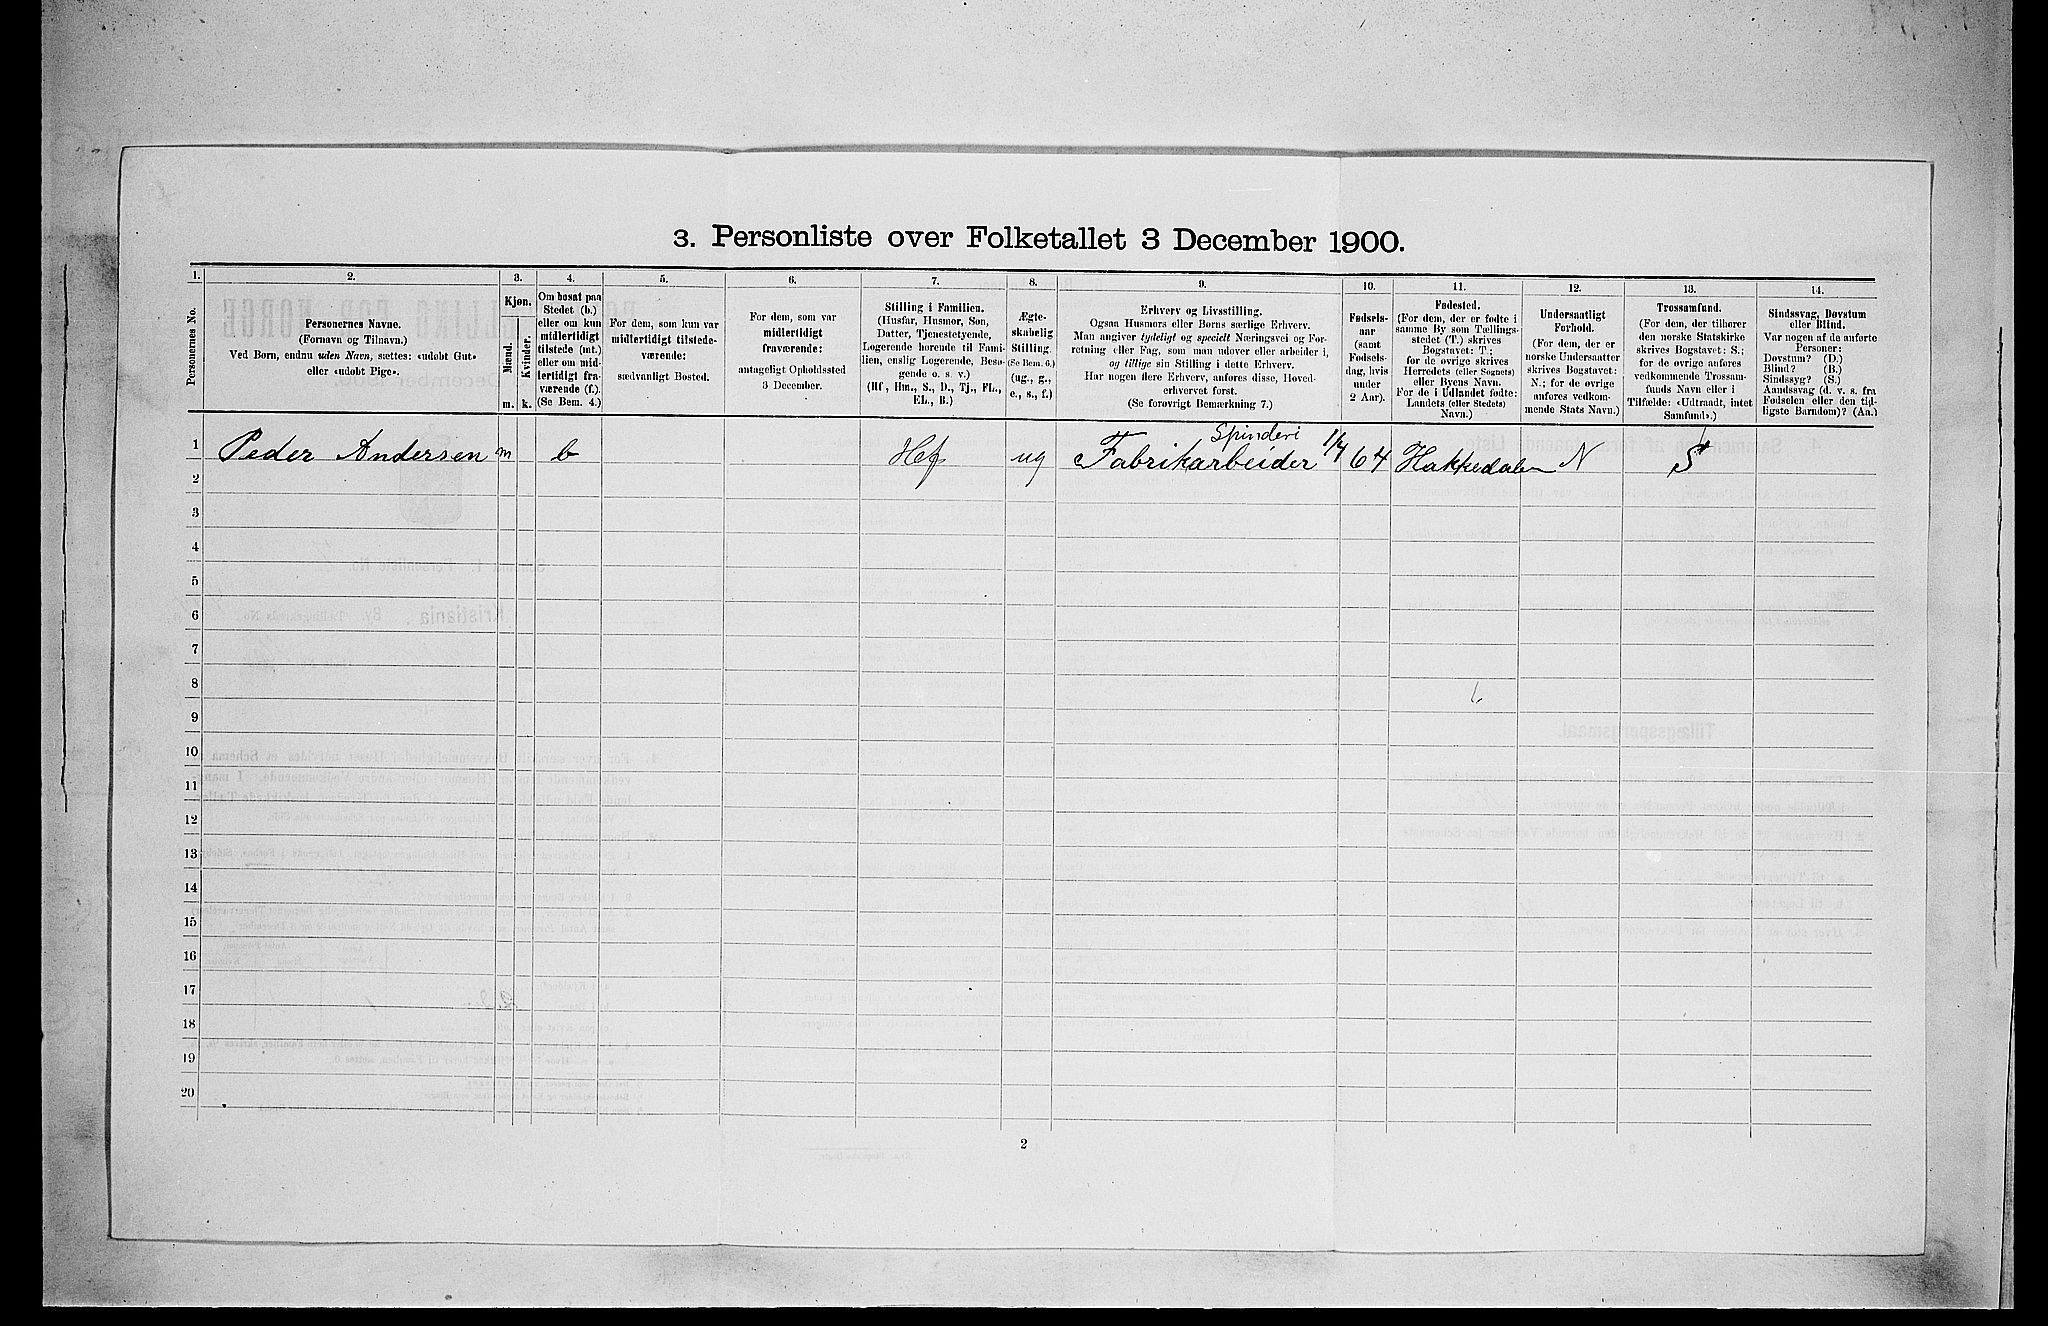 3. Personliste over Folketallet 3 December 1900.
1.
Personernes No.
2.
Personernes Navne.
(Fornavn og Tilnavn.)
Ved Børn, endnu uden Navn, sættes: «udøbt Gut»
eller «udøbt Pige».
3.
Kjøn.
Mænd.
Kvinder.
m.
k.
4.
Om bosat paa
Stedet (b.)
eller om kun
midlertidigt
tilstede (mt.)
eller om mid-
lertidigt fra-
værende (f.).
(Se Bem. 4.)
5.
For dem, som kun var
midlertidigt tilstede-
værende:
sædvanligt Bosted.
6.
For dem, som var
midlertidigt
fraværende:
antageligt Opholdssted
3 December.
7.
Stilling i Familien.
(Husfar, Husmor, Søn,
Datter, Tjenestetyende,
Logerende hørende til Fami-
lien, enslig Logerende, Besø-
gende o. s. v.)
(Hf., Hm., S., D., Tj., FL.,
EL., B.)
8.
Ægte-
skabelig
Stilling.
(Se Bem. 6.)
(ug., g.,
e., s., f.)
9.
Erhverv og Livsstilling.
Ogsaa Husmors eller Børns særlige Erhverv.
Man angiver tydeligt og specielt Næringsvei og For-
retning eller Fag, som man udøver eller arbeider i,
og tillige sin Stilling i dette Erhverv.
Har nogen flere Erhverv, anføres disse, Hoved-
erhvervet først.
(Se forøvrigt Bemærkning 7.)
10.
Fødsels-
aar
(samt
Fødsels-
dag, hvis
under
2 Aar).
11.
Fødested.
(For dem, der er fødte i
samme By som Tællings-
stedet (T.) skrives
Bogstavet: T.;
for de øvrige skrives
Herredets (eller Sognets)
eller Byens Navn.
For de i Udlandet fødte:
Landets (eller Stedets)
Navn.)
12.
Undersaatligt
Forhold.
(For dem, der er
norske Undersaatter
skrives Bogstavet:
N.; for de øvrige
anføres vedkom-
mende Stats Navn.)
13.
Trossamfund.
(For dem, der tilhører
den norske Statskirke
skrives Bogstavet: S.;
for de øvrige anføres
vedkommende Trossam-
funds Navn eller i
Tilfælde: «Udtraadt, intet
Samfund».)
14.
Sindssvag, Døvstum
eller Blind.
Var nogen af de anførte
Personer:
Døvstum? (D.)
Blind? (B.)
Sindssyg? (S.)
Aandssvag (d. v. s. fra
Fødselen eller den tid-
ligste Barndom)? (Aa.)
Spinderi
1 Peder Andersen m b Hf ug Fabrikarbeider 1/7 64 Hakkedalen N S
2
3
4
5
6
7
8
9
10
11
12
13
14
15
16
17
18
19
20
2